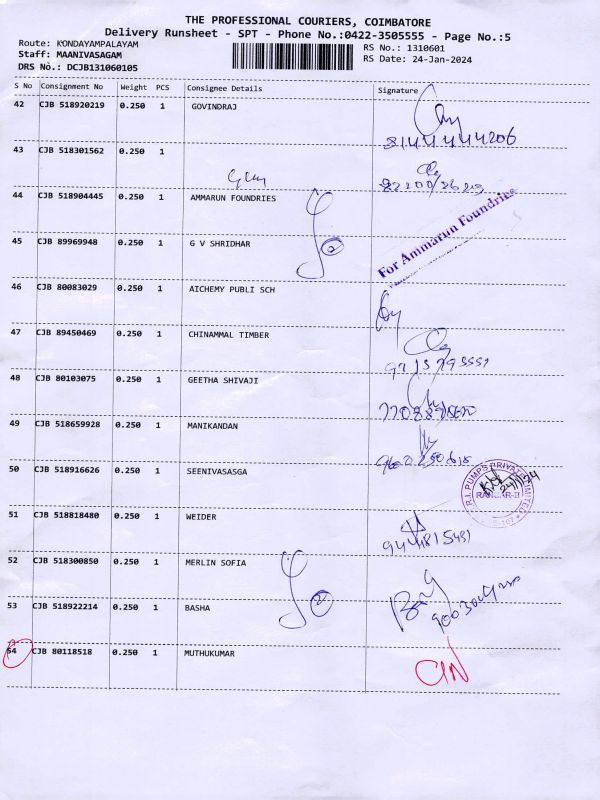 THE PROFESSIONAL COURIERS, COIMBATORE
Delivery Runsheet - SPT - Phone No.:0422-3505555 - Page No.:5
Route: KONDAYAMPALAYAM
RS No.: 1310601
Staff: MAANIVASAGAM
RS Date: 24-Jan-2024
DRS No.: DCJB131060105
S No Consignment No Weight PCS Consignee Details Signature
42 CJB 518920219 0.250 1 GOVINDRAJ
43 CJB 518301562 0.250 1
44 CJB 518904445 0.250 1 AMMARUN FOUNDRIES
For Ammarun Foundries
45 CJB 89969948 0.250 1 G V SHRIDHAR
46 CJB 80083029 0.250 1 AICHEMY PUBLI SCH
47 CJB 89450469 0.250 1 CHINNAMMAL TIMBER
48 CJB 80103075 0.250 1 GEETHA SHIVAJI
49 CJB 518659928 0.250 1 MANIKANDAN
50 CJB 518916626 0.250 1 SEENIVASASGA
R.I. PUMPS PRIVATE LIMITED
51 CJB 518818480 0.250 1 WEIDER
52 CJB 518300850 0.250 1 MERLIN SOFIA
53 CJB 518922214 0.250 1 BASHA
54 CJB 80118518 0.250 1 MUTHUKUMAR